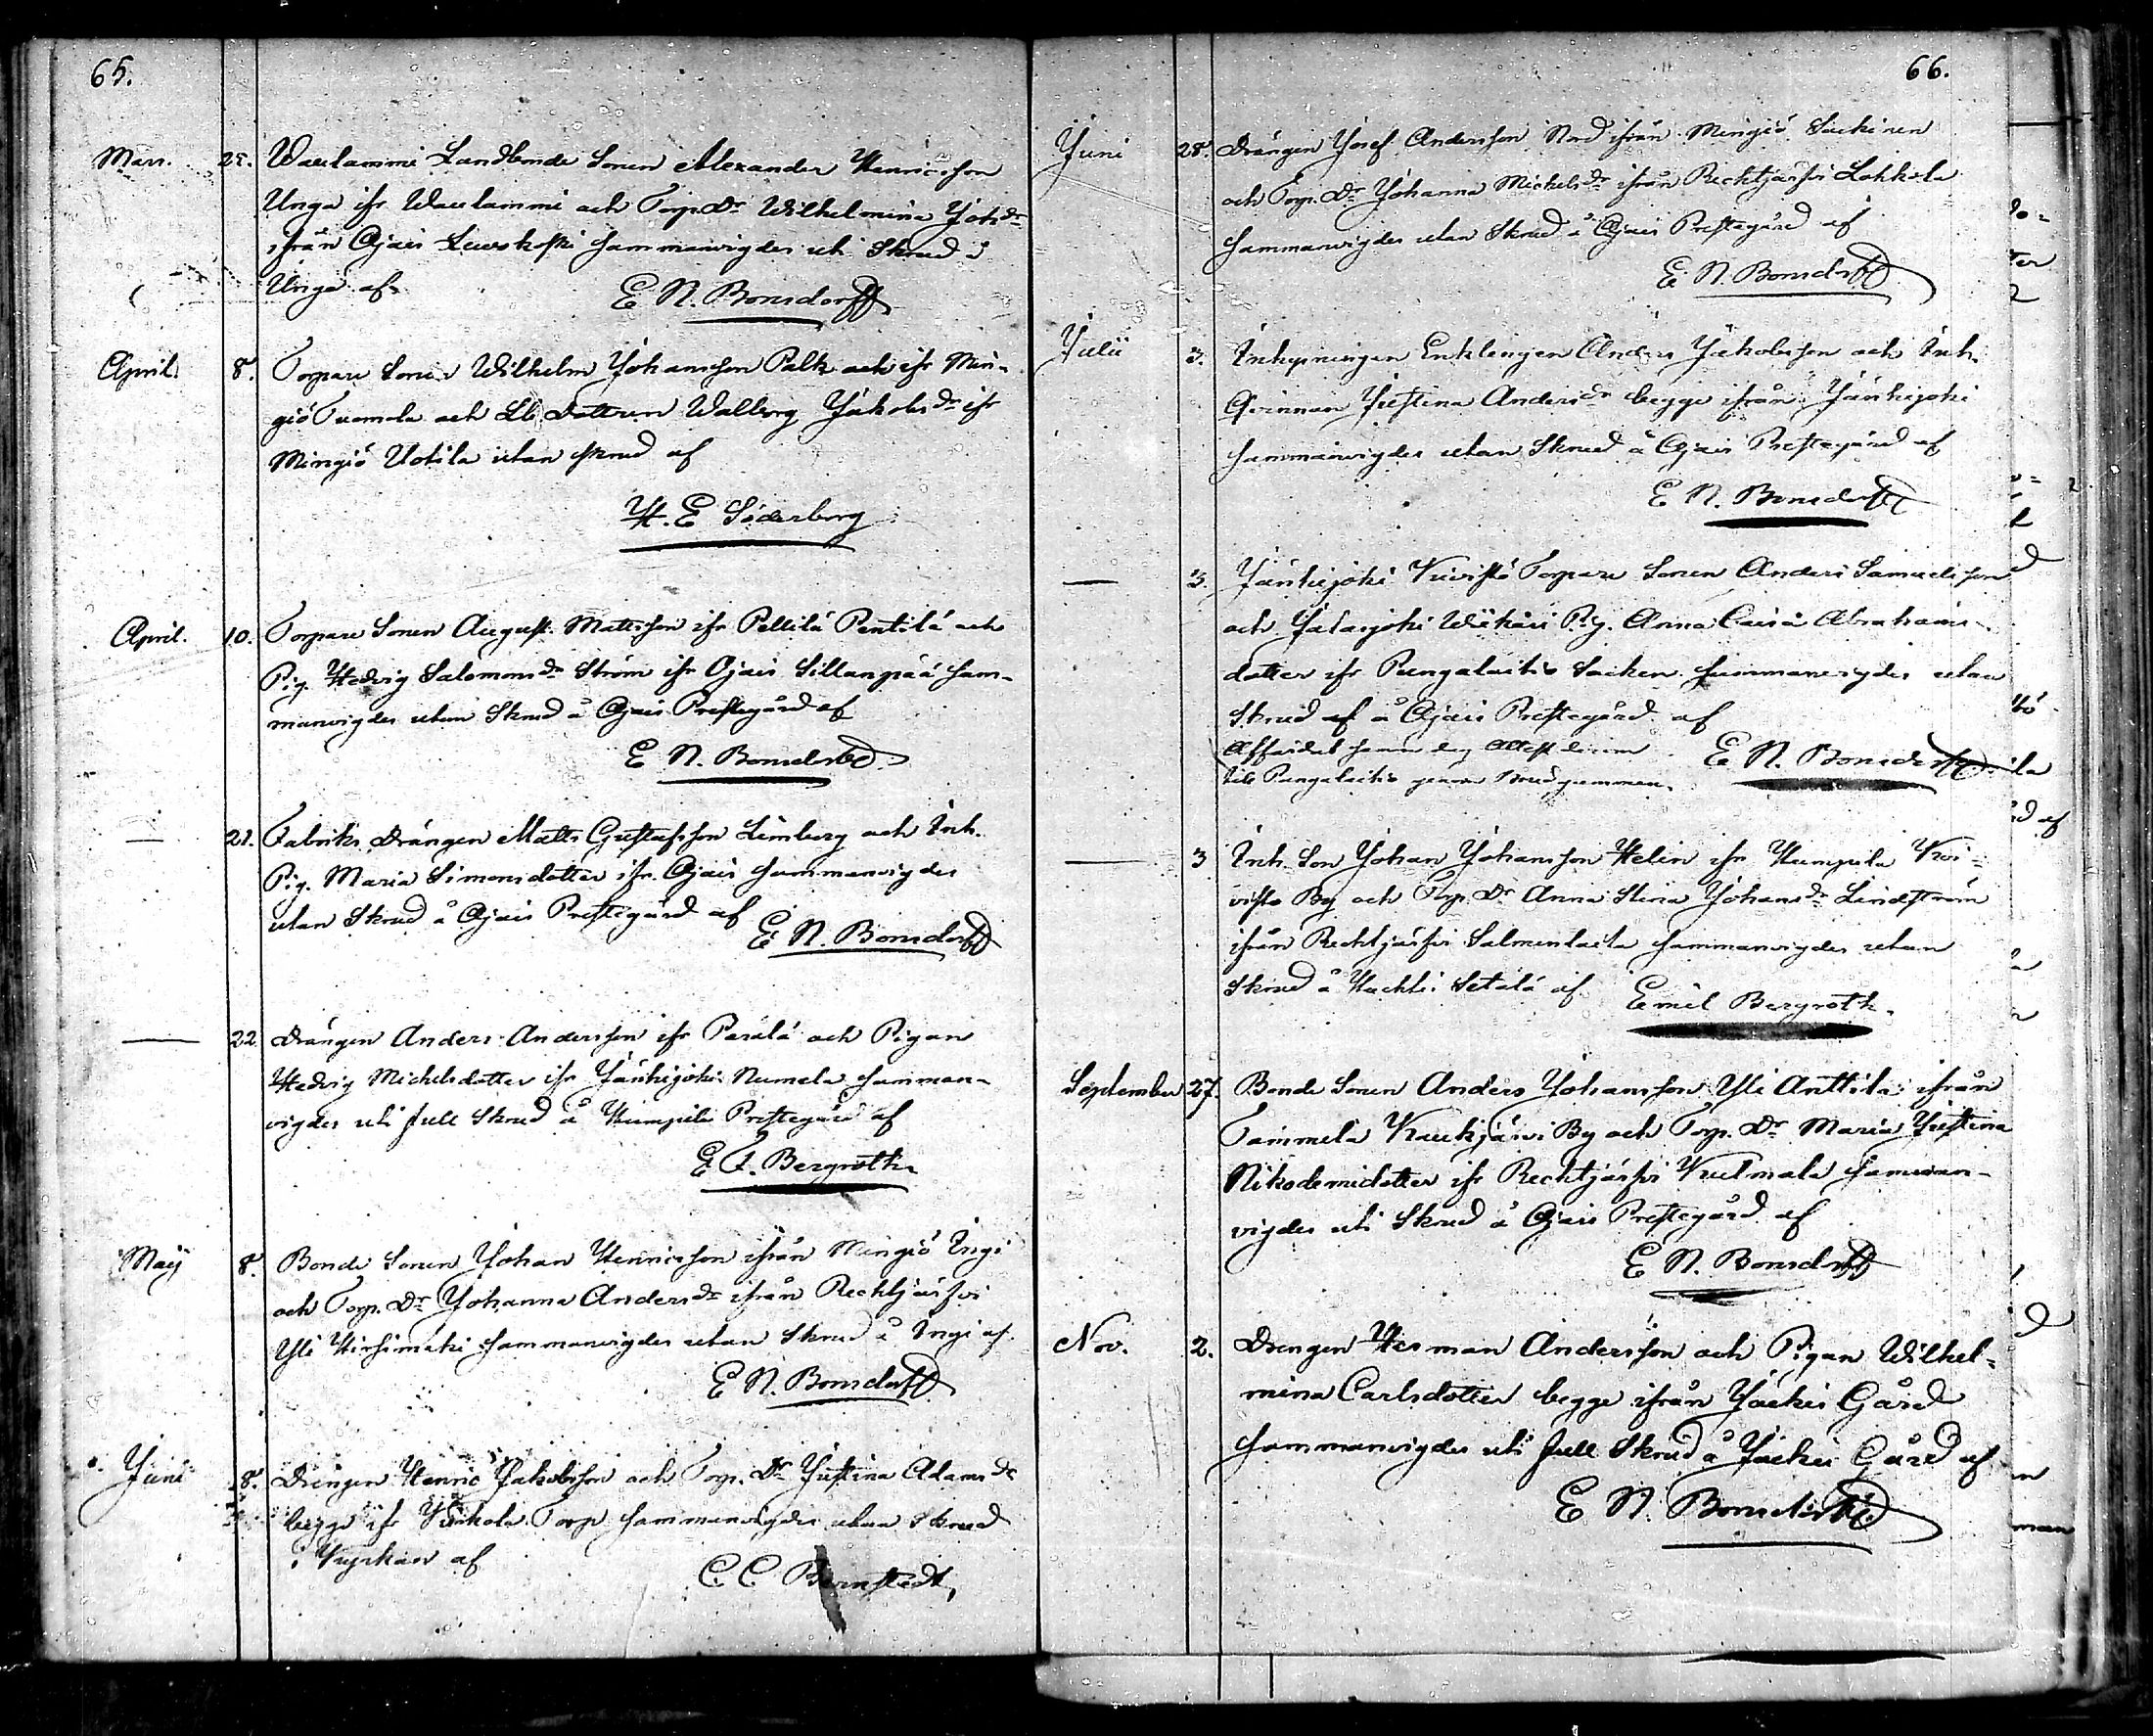 65.
Mars. 25. Waulammi Landbonde Sonen Alexander Henricsson
Unga ifr Waulammi och Torp. Dr Wilhelmina Johdr
ifrån Ojais Lewoskoski sammanvigdes uti Skrud i
Unga af
E N. Bonsdorff
April. 8. Torpare Sonen Wilhelm Johansson Palk och ifr Min-
giö Tuomola och Lb Dottren Walborg Jakobsdr ifr
Mingiö Uotila utan skrud af
H. E Söderberg
April. 10. Torpare Sonen August Mattsson ifr Peltilä Pentilä och
Pig. Hedvig Salomonsdr Ström ifr Ojais Sillanpää sam-
manvigdes utan Skrud å Ojais Prestegård af
E N. Bonsdorff
— 21. Fabriks Drängen Matts Gustafsson Limberg och Inh.
Pig. Maria Simonsdotter ifr. Ojais sammanvigdes
utan Skrud å Ojais Prestegård af
E N. Bonsdorff
— 22. Drängen Anders Andersson ifr Parälä och Pigan
Hedvig Michelsdotter ifr Jänhijoki Numela samman-
vigdes uti full Skrud å Humpila Prestegård af
E F. Bergroth
Maij 8. Bonde Sonen Johan Henricsson ifrån Mingiö Ingi
och Torp. Dr Johanna Andersdr ifrån Rechtjärfvi
Yli Hirsimäki sammanvigdes utan Skrud å Ingi af.
E N. Bonsdorff
Juni 8. Drängen Henric Jakobsson och Torp. Dr Justina Adamsdr
begge ifr Torp sammanvigdes utan Skrud
i Kyrkan af
C. C Bornstedt,
66.
Juni 28. Drängen Josef Andersson Nord ifrån Mingiö
och Torp. Dr Johanna Michelsdr ifrån Rechtjärfvi Lokkola
sammanvigdes utan Skrud å Ojais Prestegård af
E. N. Bonsdorff
Julii 3. Inhysningen Enklingen Anders Jakobsson och Inh.
Qvinnan Justina Andersdr begge ifrån Jänhijoki
sammanvigdes utan Skrud å Ojais Prestegård af
E N. Bonsdorff
— 3. Jänhijoki Kuivistö Torpare Sonen Anders Samuelsson
och Jalasjoki Pig. Anna Caisa Abrahams-
dotter ifr Pungalaitio Socken sammanvigdes utan
Skrud af å Ojais Prestegård af
till Pungalaitio genom Brudgummen.
E N. Bonsdorff
— 3 Inh. Son Johan Johansson Helin ifr Humpila Koi-
visto By och Torp. Dr Anna Stina Johansdr Lindström
ifrån Rechtjärfvi Salmenlaita sammanvigdes utan
Skrud å Setälä af Emil Bergroth.
September 27. Bonde Sonen Anders Johansson Yli Anttila ifrån
Tammela Kaukjärvi By och Torp. Dr Maria Justina
Nikodemidotter ifr Rechtjärfvi Kulmala samman-
vigdes uti Skrud å Ojais Prestegård af
E N. Bonsdorff
Nov. 2. Drengen Herman Andersson och Pigan Wilhel-
mina Carlsdotter begge ifrån Jockis Gård
sammanvigdes uti full Skrud å Jockis Gård af
E N. Bonsdorff